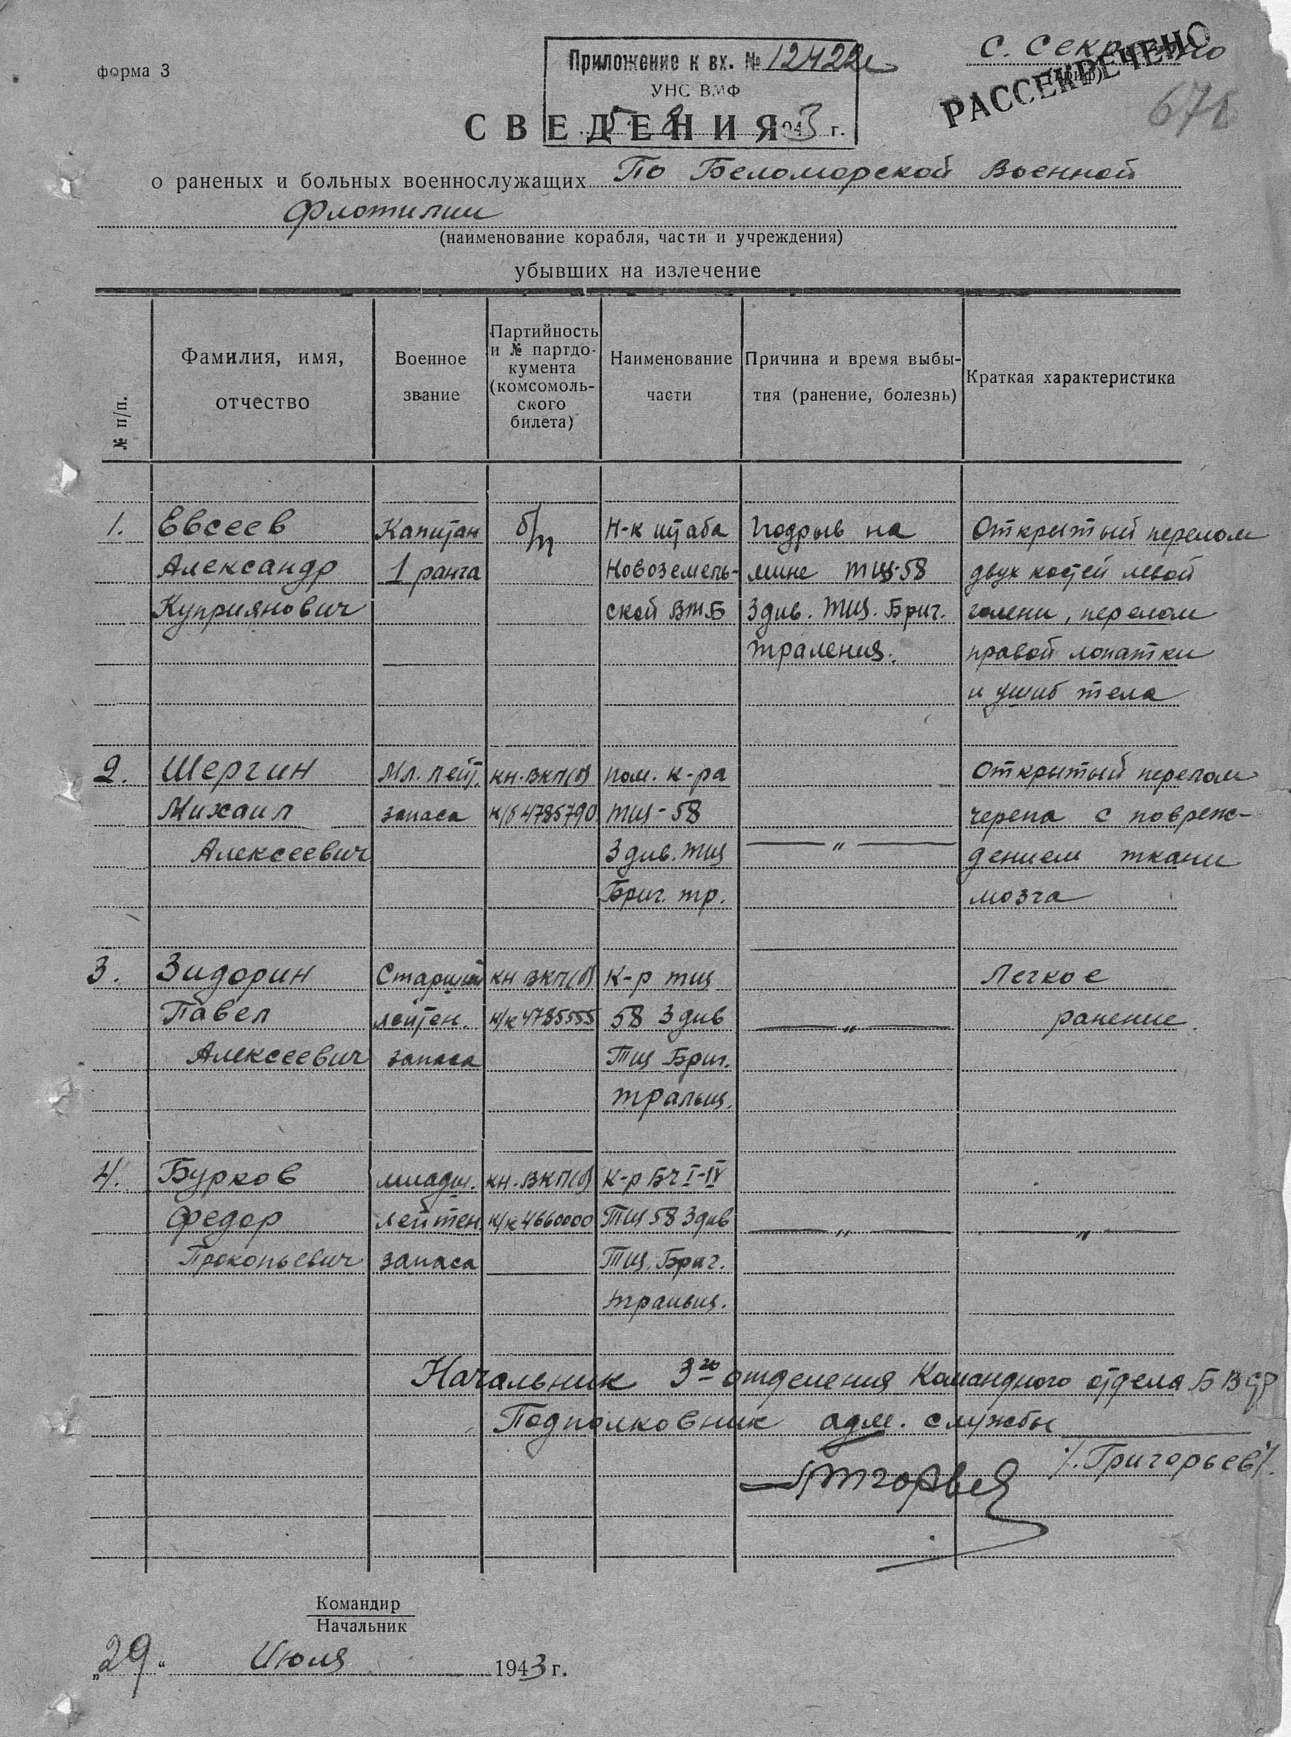 форма 3
Приложение к вх. № 12422с
УНС ВМФ
5 8 1943 г.
С. Секретно
РАССЕКРЕЧЕНО
СВЕДЕНИЯ
о раненых и больных военнослужащих По Беломорской Военной
Флотилии
(наименование корабля, части и учреждения)
убывших на излечение
№ п/п.
Фамилия, имя,
отчество
Военное
звание
Партийность
и № партдо-
кумента
(комсомоль-
ского
билета)
Наименование
части
Причина и время выбы-
тия (ранение, болезнь)
Краткая характеристика
1. Евсеев Капитан б/п Н-к штаба Подрыв на Открытый перелом
Александр 1 ранга Новоземель- мине ТЩ-58 двух костей левой
Куприянович ской ВМБ 3 див. ТЩ. Бриг. голени, перелом
траления. правой лопатки
и ушиб тела
2. Шергин Мл. лейт. кн. ВКП(б) пом. к-ра Открытый перелом
Михаил запаса н/б 4785790 ТЩ-58 черепа с повреж-
Алексеевич 3 див. ТЩ — " — дением ткани
Бриг. тр. мозга
3. Зидорин Старший кн ВКП(б) К-р ТЩ Легкое
Павел лейтен. н/к 4785555 58 3 див — " — ранение.
Алексеевич запаса ТЩ Бриг.
тральщ.
4. Бурков младш. кн. ВКП(б) К-р БЧ I-IV
Федор лейтен. н/к 4660000 ТЩ 58 3 див — " — — " —
Прокопьевич запаса ТЩ. Бриг.
тральщ.
Начальник 3го отделения Командного отдела БВФ
Подполковник адм. службы
/. Григорьев /.
Командир
Начальник
„29" Июля 1943 г.